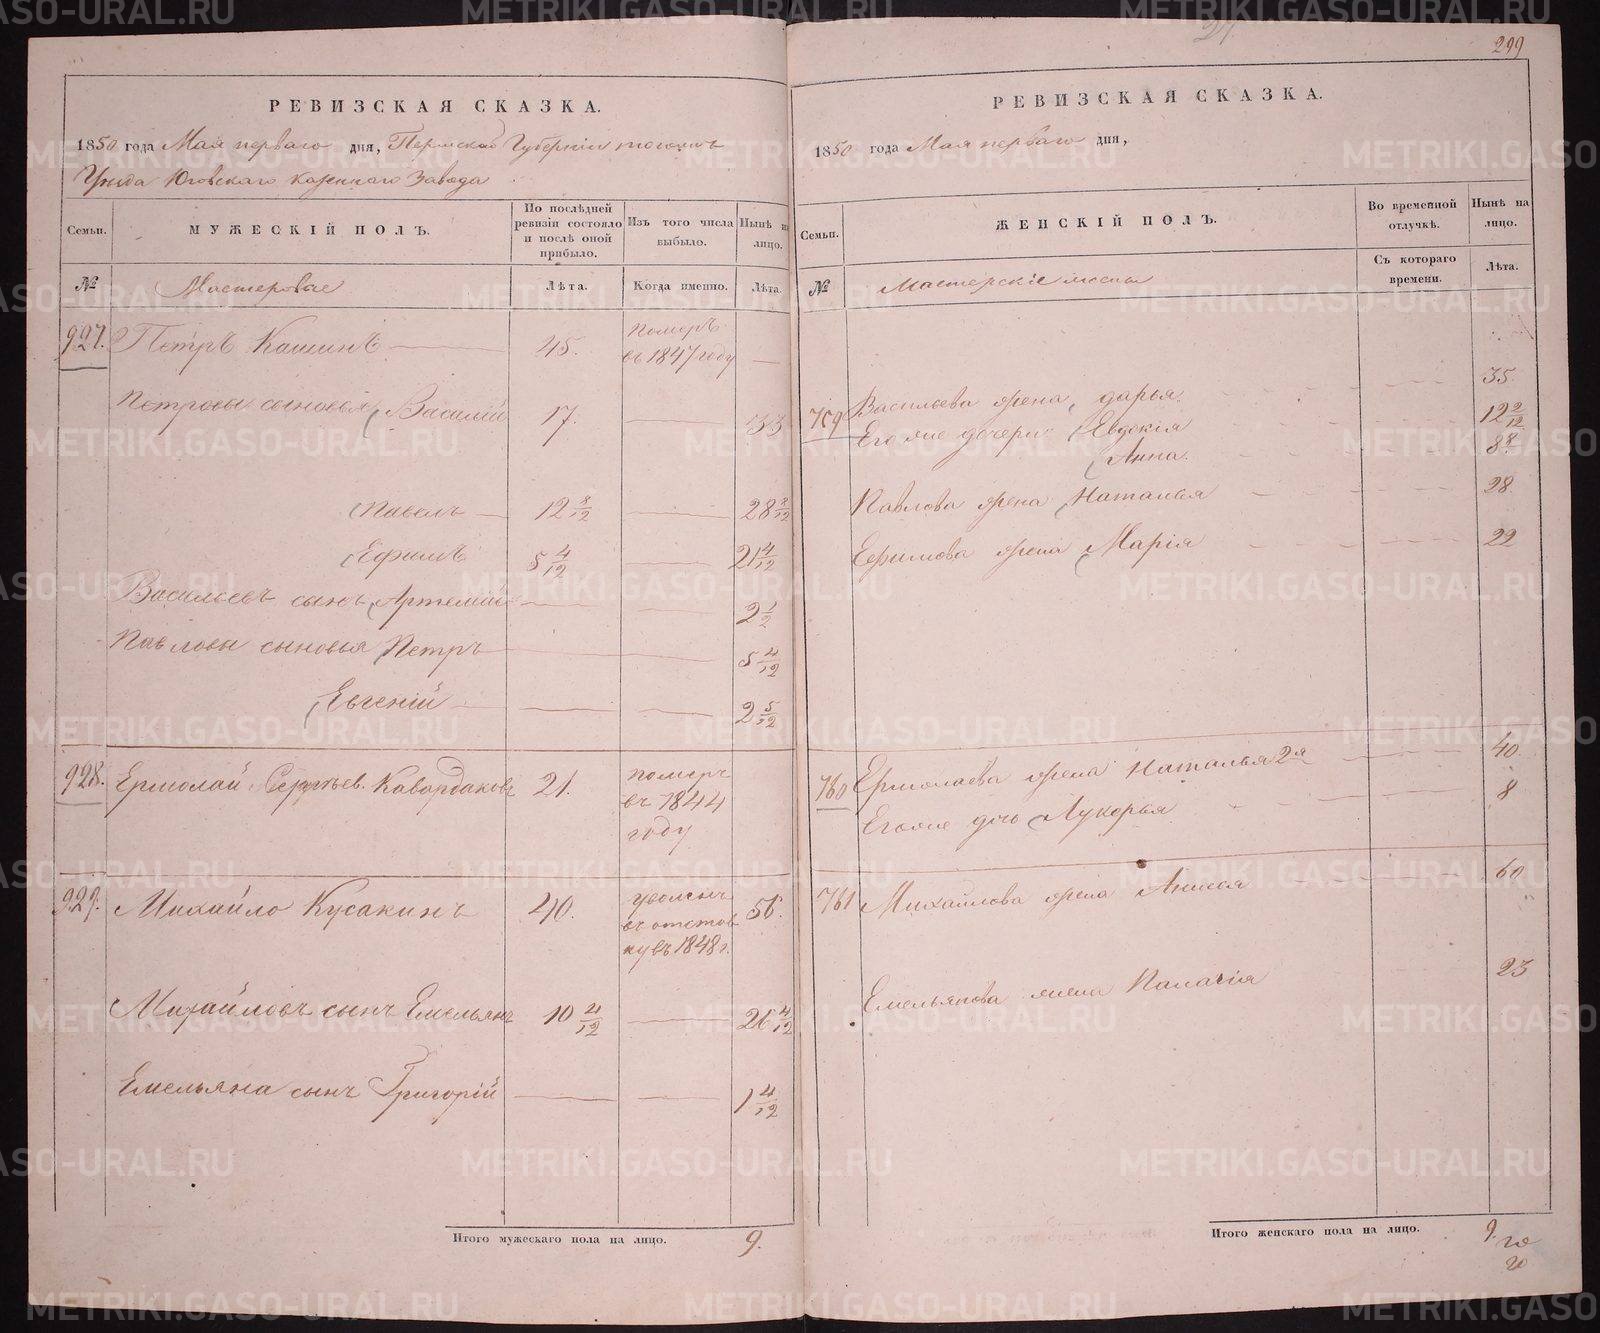 299
РЕВИЗСКАЯ СКАЗКА.
1850 года Мая перваго дня, Пермской Губернiи тогожъ
Уѣзда Юговскаго казеннаго Завода
Семьи. МУЖЕСКIЙ ПОЛЪ. По послѣдней ревизiи состояло и послѣ оной прибыло. Изъ того числа выбыло. Нынѣ на лицо.
№ Мастеровые Лѣта. Когда именно. Лѣта.
927. Петръ Кашинъ 45. померъ въ 1847 году
Петровы сыновья Василiй 17. 33
Павелъ 12 8/12 28 8/12
Ефимъ 5 4/12 21 4/12
Васильевъ сынъ Артемiй 2 1/2
Павловы сыновья Петръ 5 4/12
Евгенiй 2 5/12
928. Ермолай Сергѣев. Кавардаковъ 21. померъ въ 1844 году
929. Михайло Кусакинъ 40. уволенъ въ отставку въ 1848 г. 56.
Михайловъ сынъ Емельянъ 10 4/12 26 4/12
Емельяна сынъ Григорiй 1 4/12
Итого мужескаго пола на лицо. 9.
РЕВИЗСКАЯ СКАЗКА.
1850 года Мая перваго дня,
Семьи. ЖЕНСКIЙ ПОЛЪ. Во временной отлучкѣ. Нынѣ на лицо.
№ Мастерскiе Съ котораго времени. Лѣта.
759 Васильева жена, Дарья 35.
Его же дочери Евдокiя 12 2/12
Анна. 8
Павлова жена Наталья 28.
Ефимова жена Марiя 22
760 Ермолаева жена Наталья 2я 40
Его же дочь Лукерья 8
761 Михайлова жена Анисья 60
Емельянова жена Палагiя 23
Итого женскаго пола на лицо. 9.
METRIKI.GASO-URAL.RU